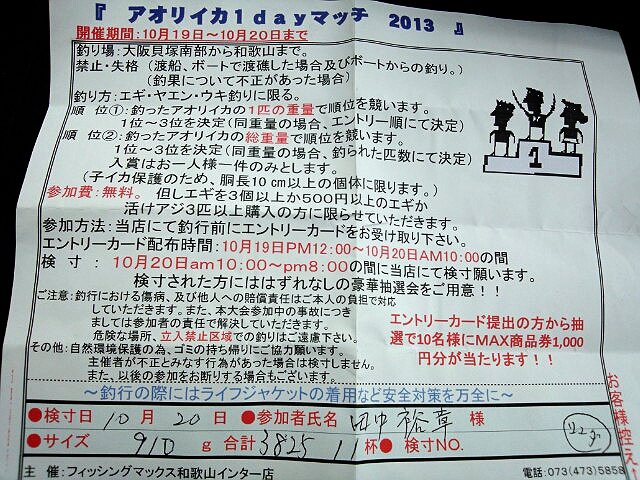 『 アオリイカ1dayマッチ 2013 』
開催期間:10月19日~10月20日まで
釣り場:大阪貝塚南部から和歌山まで。
禁止・失格 (渡船、ボートで渡礁した場合及びボートからの釣り。)
(釣果について不正があった場合)
釣り方:エギ・ヤエン・ウキ釣りに限る。
順 位①:釣ったアオリイカの1匹の重量で順位を競います。
1位~3位を決定(同重量の場合、エントリー順にて決定)
順 位②:釣ったアオリイカの総重量で順位を競います。
1位~3位を決定(同重量の場合、釣られた匹数にて決定)
入賞はお一人様一件のみとします。
(子イカ保護のため、胴長10cm以上の個体に限ります。)
参加費:無料。 但しエギを3個以上か500円以上のエギか
活けアジ3匹以上購入の方に限らせていただきます。
参加方法:当店にて釣行前にエントリーカードをお受け取り下さい。
エントリーカード配布時間:10月19日PM12:00~10月20日AM10:00の間
検 寸:10月20日am10:00~pm8:00の間に当店にて検寸願います。
検寸された方にははずれなしの豪華抽選会をご用意!!
ご注意:釣行における傷病、及び他人への賠償責任はご本人の負担で対応
していただきます。また、本大会参加中の事故につき
ましては参加者の責任で解決していただきます。
危険な場所、立入禁止区域での釣りはご遠慮下さい。
その他:自然環境保護の為、ゴミの持ち帰りにご協力願います。
主催者が不正とみなす行為があった場合は検寸しません。
また、以後の参加をお断りする場合もございます。
エントリーカード提出の方から抽
選で10名様にMAX商品券1,000
円分が当たります!!
1
~釣行の際にはライフジャケットの着用など安全対策を万全に~
お客様控え↑
●検寸日 10月 20日 ●参加者氏名 田中裕章 様
●サイズ 910 g 合計 3825 11杯 ● 検寸NO.
主 催:フィッシングマックス和歌山インター店
電話:073(473)5858